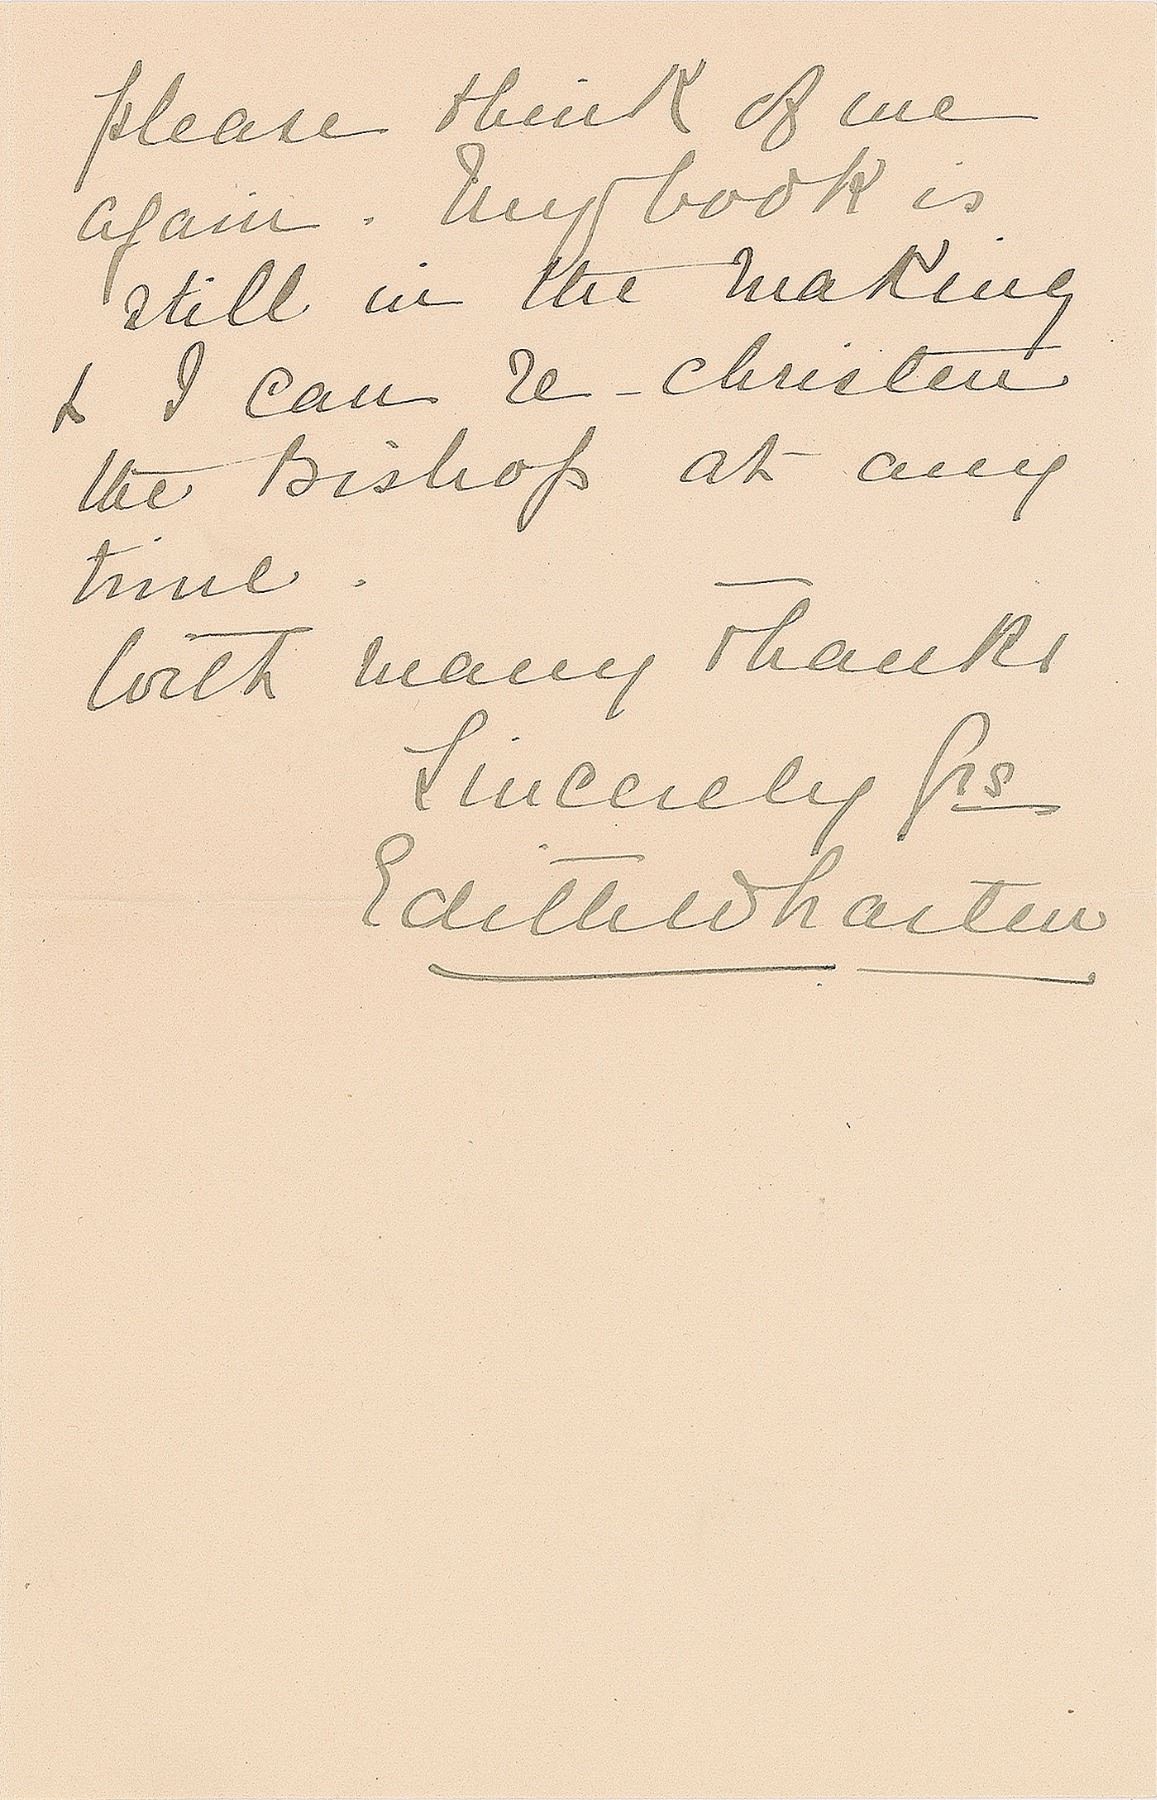 please think of me
again. My book is
still in the making
& I can re-christen
the Bishop at any
time.
With many thanks
Sincerely Yrs
Edith Wharton